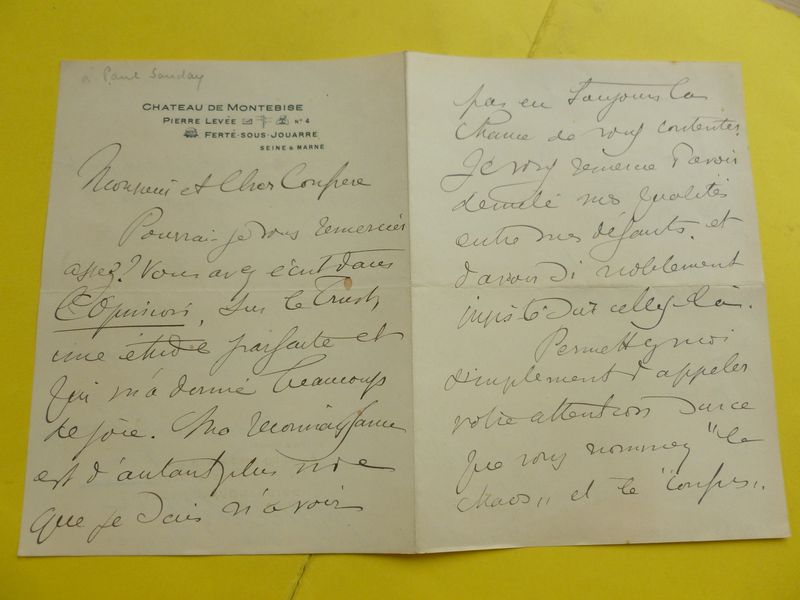 à Paul Souday
CHATEAU DE MONTEBISE
PIERRE LEVÉE N° 4
FERTÉ-SOUS-JOUARRE
SEINE & MARNE
Monsieur et Cher Confrère
Pourrai-je vous remercier
assez? Vous avez écrit dans
L'Opinion, sur le Trust,
une étude parfaite et
qui m'a donné beaucoup
de joie. Ma reconnaissance
est d'autant plus vive
que je sais n'avoir
pas eu toujours la
chance de vous contenter.
Je vous remercie d'avoir
démêlé mes qualités
entre mes défauts, et
d'avoir si noblement
insisté sur celles-là.
Permettez moi
simplement d'appeler
votre attention sur ce
que vous nommez "le
chaos" et le "confus".